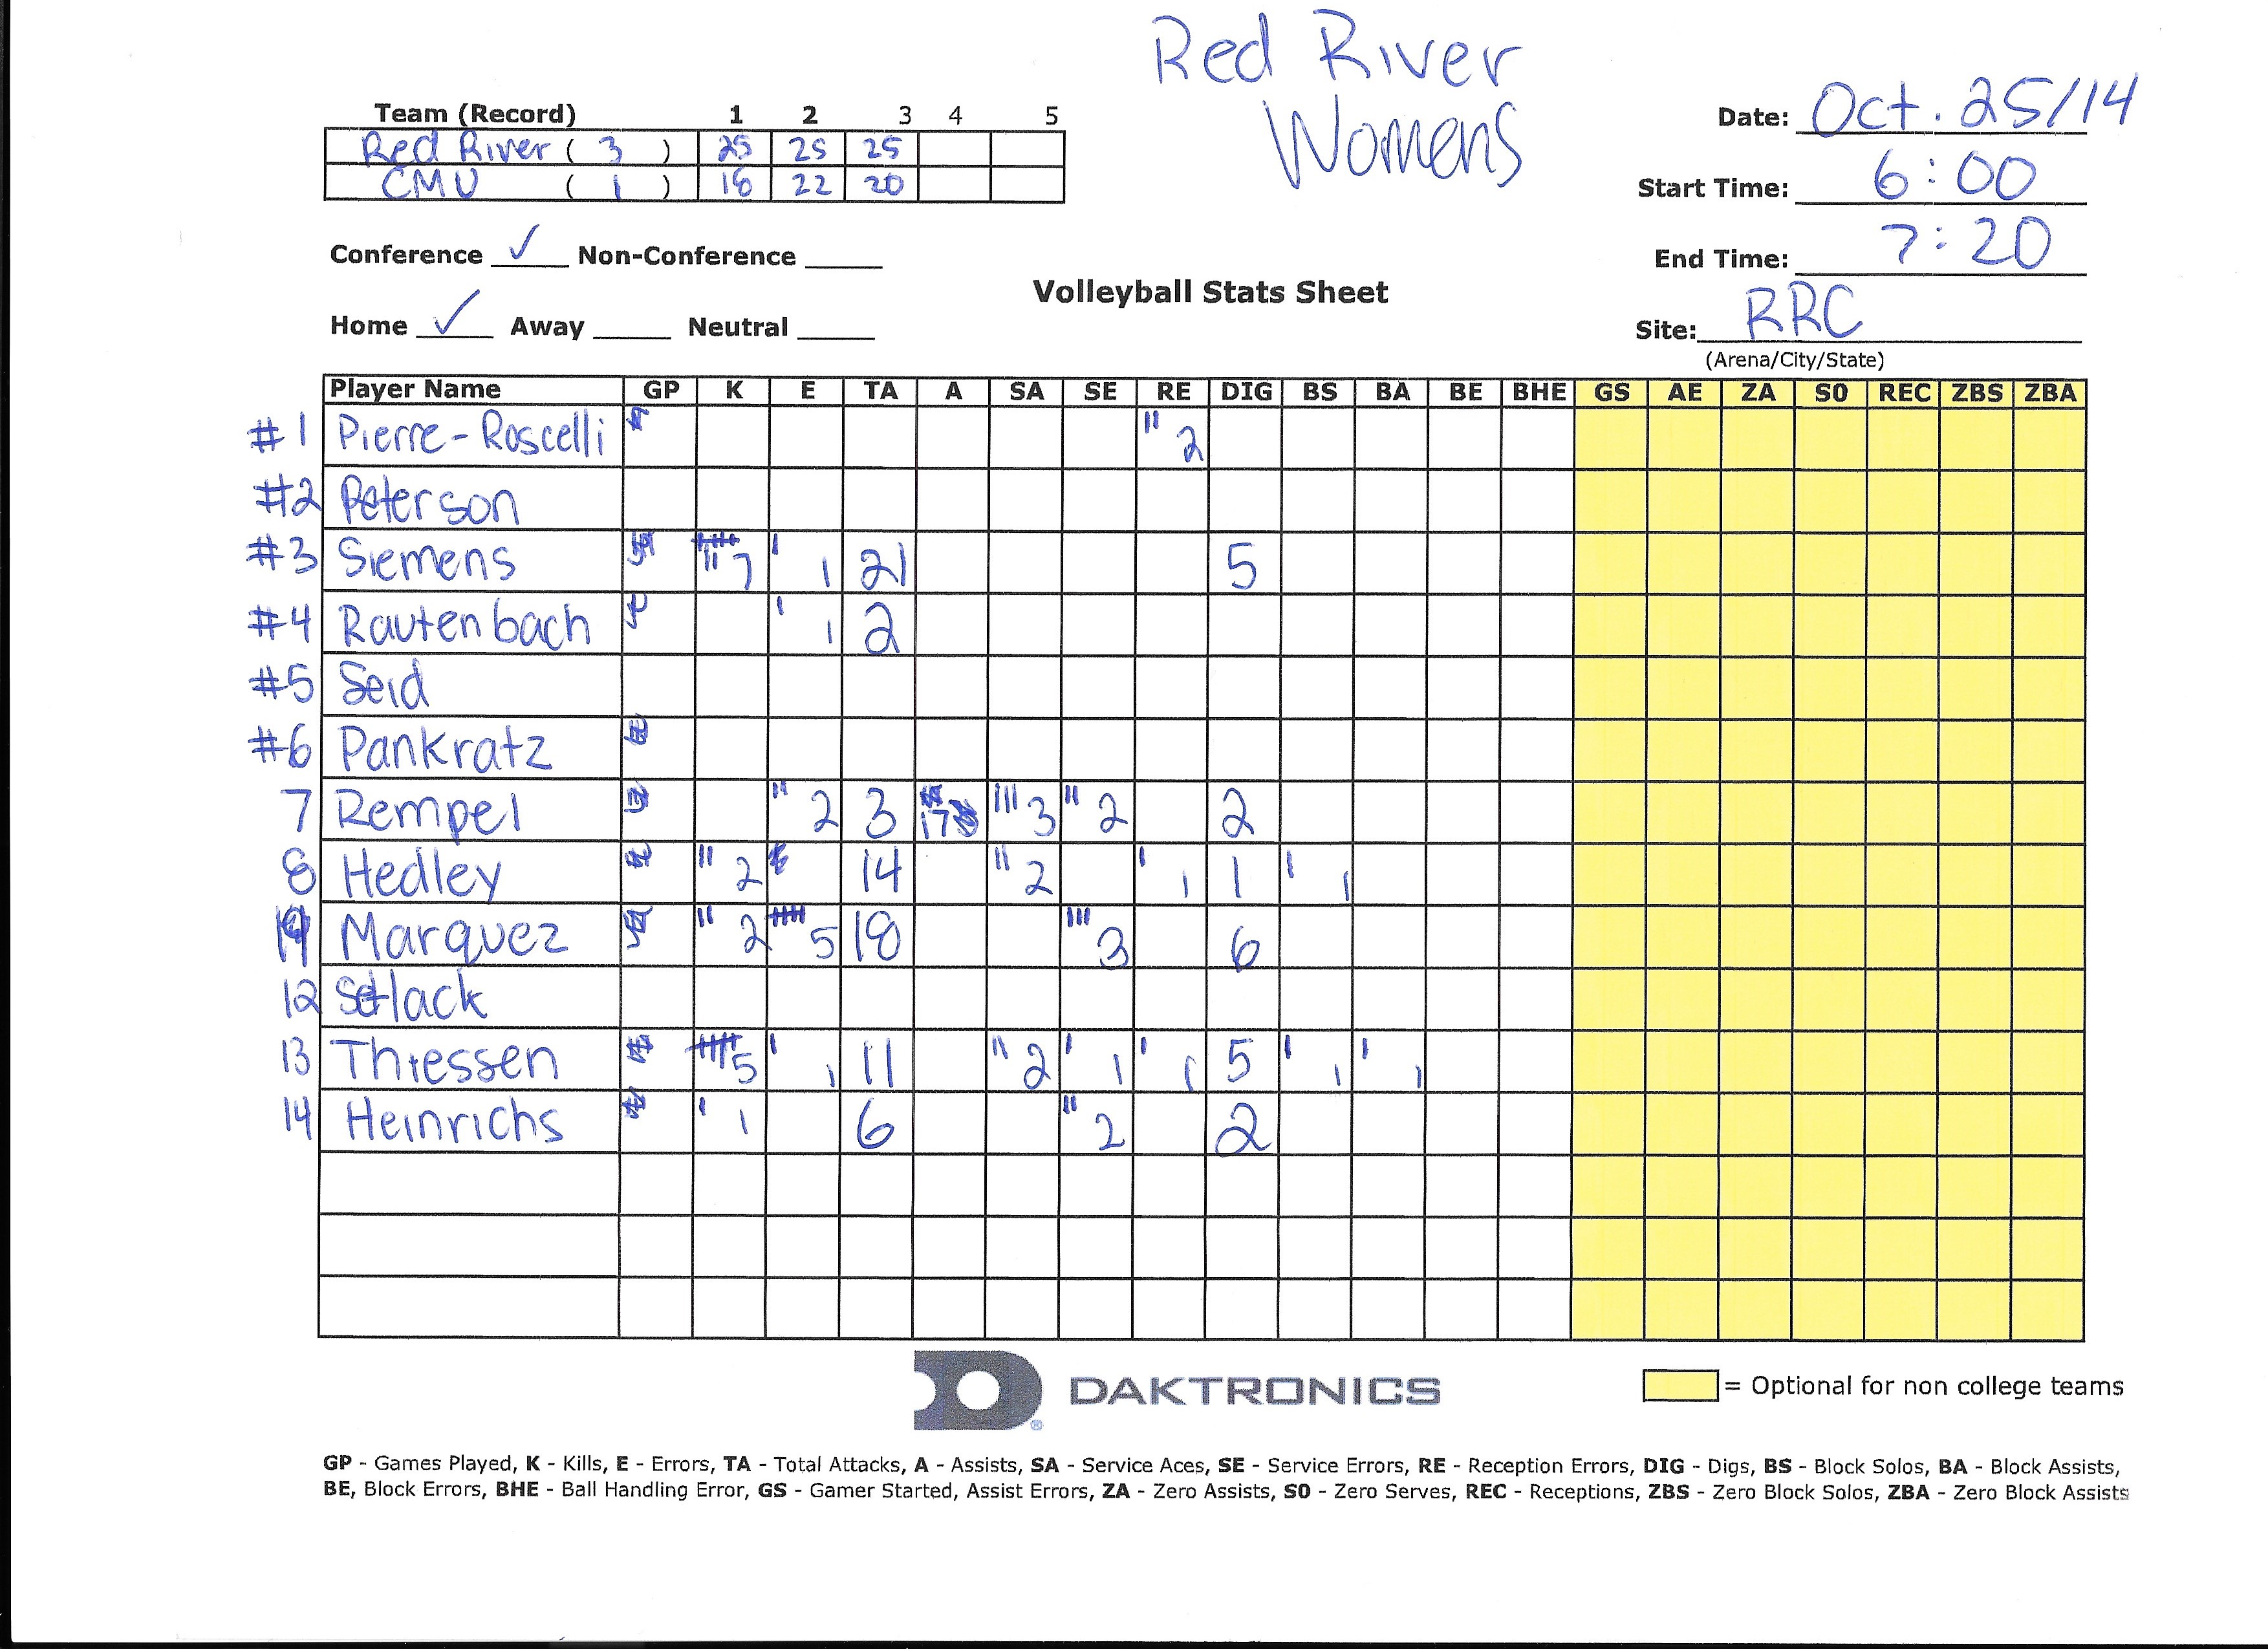 Red River
Womens
Team (Record) 1 2 3 4 5
Red River ( 3 ) 25 25 25
CMU ( 1 ) 18 22 20
Date: Oct. 25/14
Start Time: 6:00
End Time: 7:20
Conference ✓ Non-Conference
Volleyball Stats Sheet
Home ✓ Away Neutral
Site: RRC
(Arena/City/State)
Player Name GP K E TA A SA SE RE DIG BS BA BE BHE GS AE ZA S0 REC ZBS ZBA
#1 Pierre-Roscelli 2
#2 Peterson
#3 Siemens 7 1 21 5
#4 Rautenbach 1 2
#5 Seid
#6 Pankratz
7 Rempel 2 3 17 3 2 2
8 Hedley 2 14 2 1 1 1
Marquez 2 5 18 3 6
12 lack
13 Thiessen 5 1 11 2 1 1 5 1 1
14 Heinrichs 1 6 2 2
DAKTRONICS
= Optional for non college teams
GP - Games Played, K - Kills, E - Errors, TA - Total Attacks, A - Assists, SA - Service Aces, SE - Service Errors, RE - Reception Errors, DIG - Digs, BS - Block Solos, BA - Block Assists,
BE, Block Errors, BHE - Ball Handling Error, GS - Gamer Started, Assist Errors, ZA - Zero Assists, S0 - Zero Serves, REC - Receptions, ZBS - Zero Block Solos, ZBA - Zero Block Assists